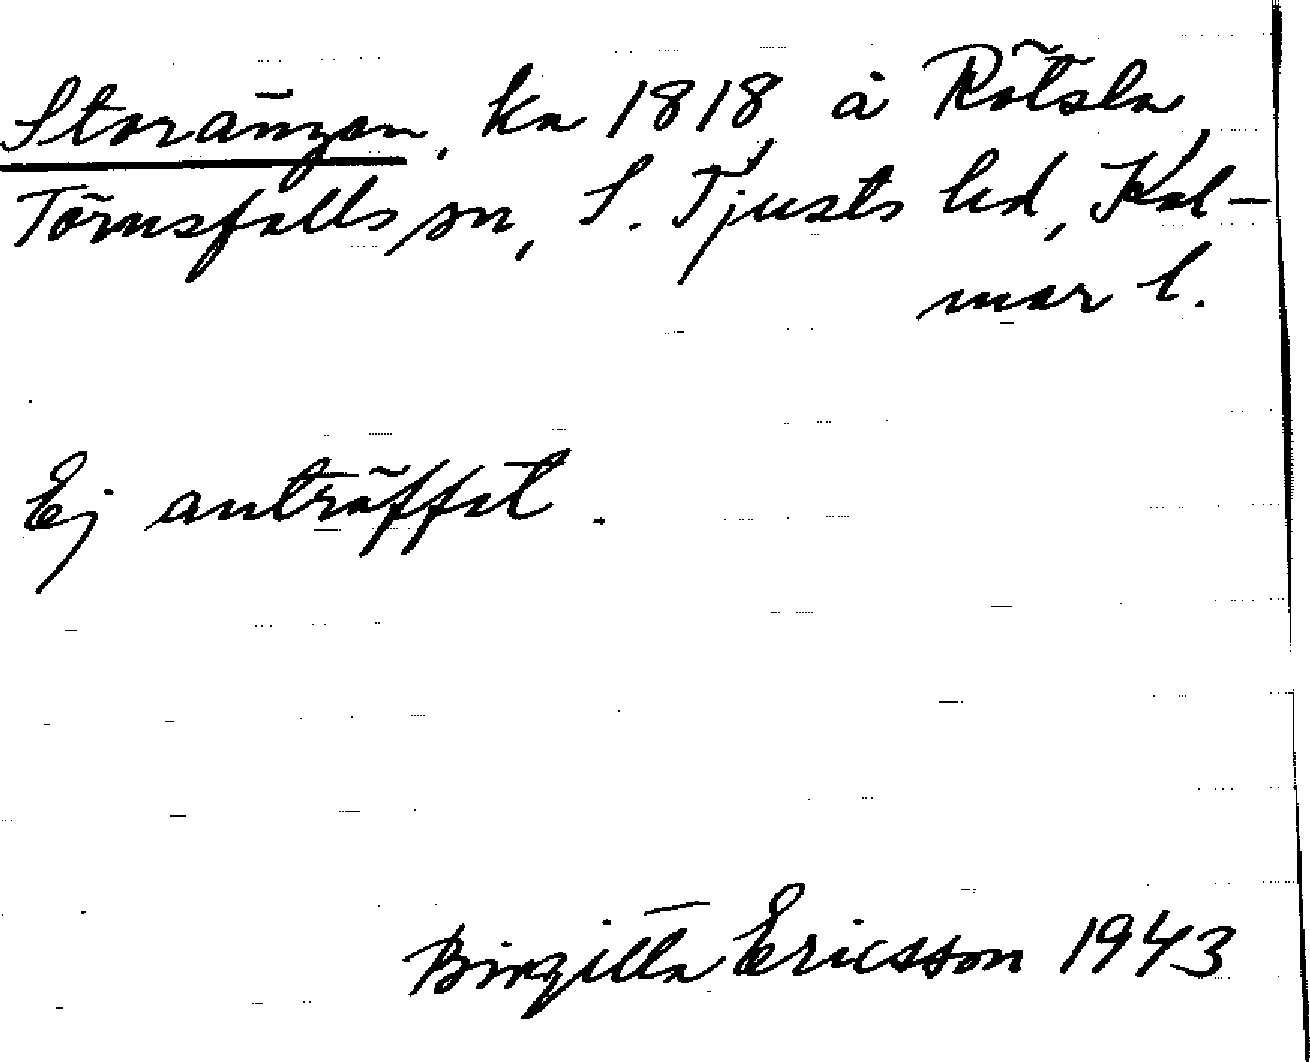 Storängen, ka 1818, å Rötsla,
Törnsfalls sn, S. Tjusts hd, Kal-
mar l.
Ej anträffat.
Birgitta Ericsson 1943